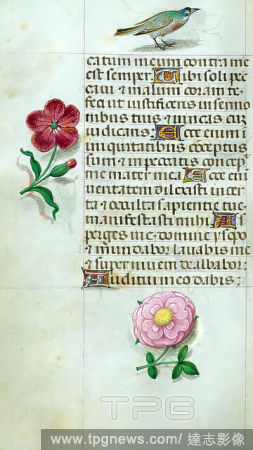 catum meum contra me
est semper. Tibi soli pec
cavi & malum coram te
feci ut iustificeris in sermo
nibus tuis & vincas cum
iudicaris. Ecce enim in
iniquitatibus conceptus
sum & in peccatis concep
me mater mea. Ecce enim
veritatem dilexisti incer
ta & occulta sapientie tue
manifestasti mihi. As
perges me domine ysopo
& mundabor lavabis me
& super nivem dealbabor.
Auditui meo dabis
TPG
www.tpgnews.com/達志影像